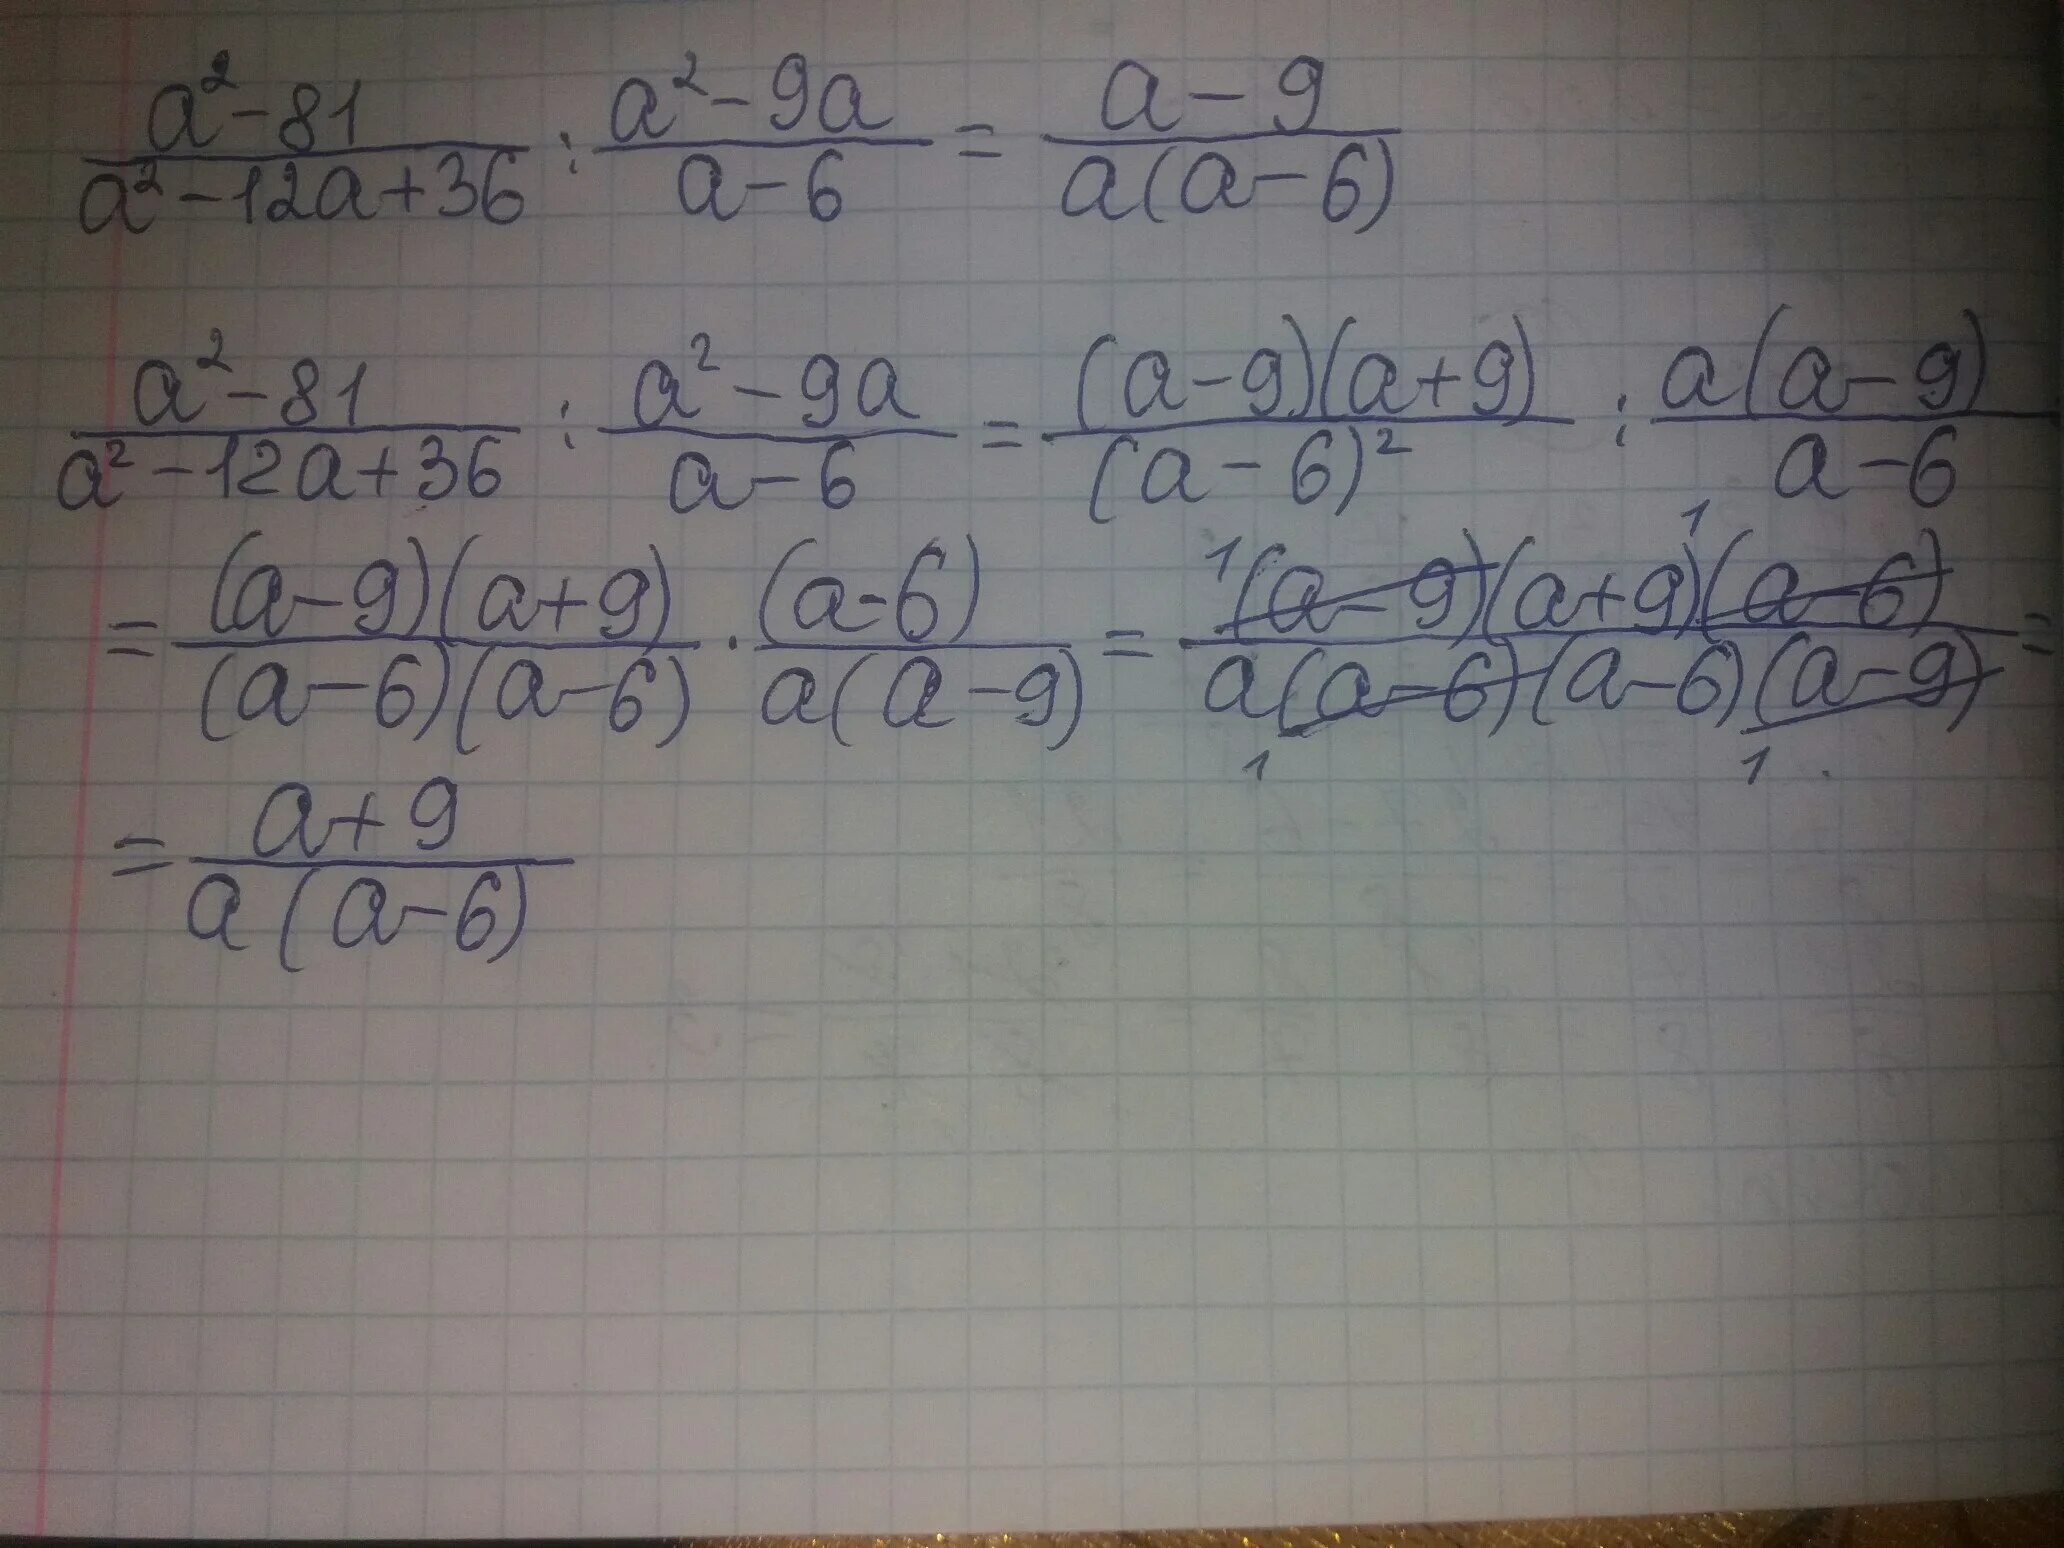 a²-81/a²-12a+36 : a²-9a/a-6 = a-9/a(a-6)
a²-81/a²-12a+36 : a²-9a/a-6 = (a-9)(a+9)/(a-6)² : a(a-9)/a-6
= (a-9)(a+9)/(a-6)(a-6) · (a-6)/a(a-9) = 1(a-9)(a+9)1(a-6)/a(a-6)1(a-6)(a-9)1 =
= a+9/a(a-6)